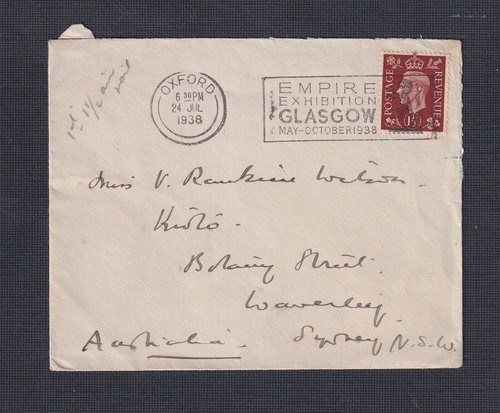 1st 1½ air
mail
OXFORD
6 30 PM
24 JUL
1938
EMPIRE
EXHIBITION
GLASGOW
MAY-OCTOBER 1938
POSTAGE
REVENUE
1½D
Miss V. Rankine Watson.
Botany Street.
Waverley.
Australia. Sydney N.S.W.